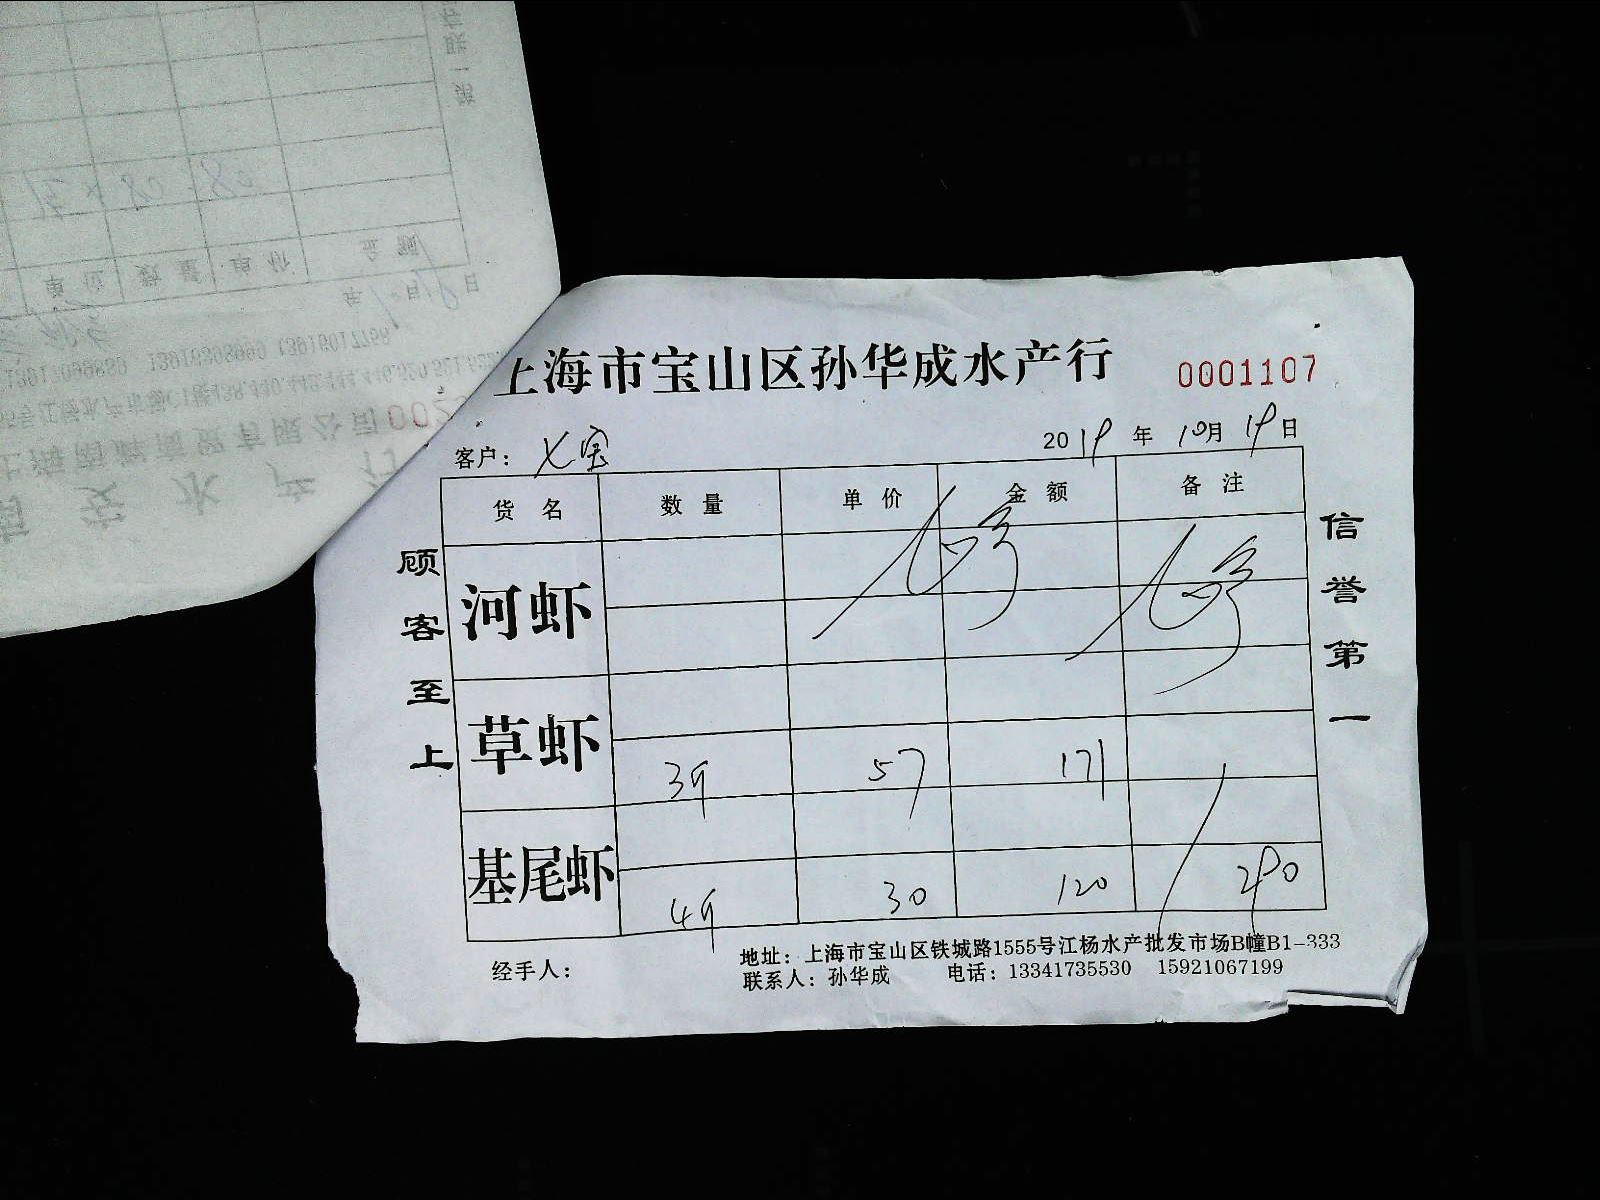 上海市宝山区孙华成水产行 0001107
客户：七宝 2019年10月19日
货名 数量 单价 金额 备注
河虾
草虾 3斤 57 171
基尾虾 4斤 30 120 290
顾客至上
信誉第一
经手人：
地址：上海市宝山区铁城路1555号江杨水产批发市场B幢B1-333
联系人：孙华成 电话：13341735530 15921067199
第一联
单位 数量 单价 金额
年10月19日
水产行